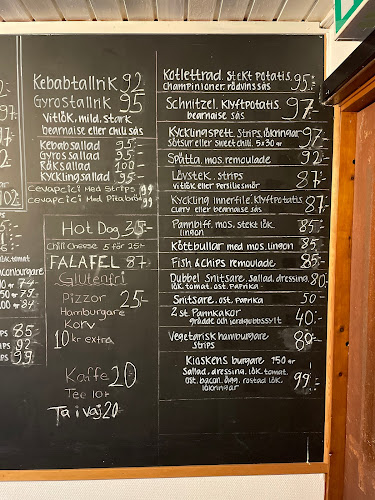 Kebabtallrik 92
Gyrostallrik 95
Vitlök, mild, stark
bearnaise eller chilisås
Kebabsallad 95:-
Gyros sallad 95:-
Räksallad 100:-
Kycklingsallad 95:-
Cevapcici Med Strips 99
Cevapcici Med Pitabröd 99
Hot Dog 35:-
Chili cheese 5 för 25:-
FALAFEL 87
Glutenfri
Pizzor 25:-
Hamburgare
Korv
10 kr extra
Kaffe 20
Tee 10:-
Ta i väg 20
Kotlettrad. Stekt potatis. 95:-
Champinjoner, rödvinssås
Schnitzel. Klyftpotatis. 97:-
bearnaise sås
Kycklingspett. Strips, lökringar. 97
Sötsur eller sweet chili. 5x30 gr
Spätta. mos. remoulade 92:-
Lövstek. strips 87:-
vitlök eller Persiliesmör
Kyckling innerfile. klyftpotatis. 87
curry eller bearnaise sås
Pannbiff. mos. stekt lök. 85:-
lingon
Köttbullar med mos. lingon 85:-
Fish & chips remoulade 85:-
Dubbel Snitsare. Sallad, dressing. 80:-
lök. tomat. ost. Paprika
Snitsare. ost. Paprika 50:-
2 st Pannkakor 40:-
grädde och jordgubbssylt
Vegetarisk hamburgare 85:-
strips
Kioskens burgare 150 gr 99:-
Sallad, dressing. lök. tomat.
ost. bacon. ägg. rostad lök.
lökringar
102
lök. tomat
85
92
99